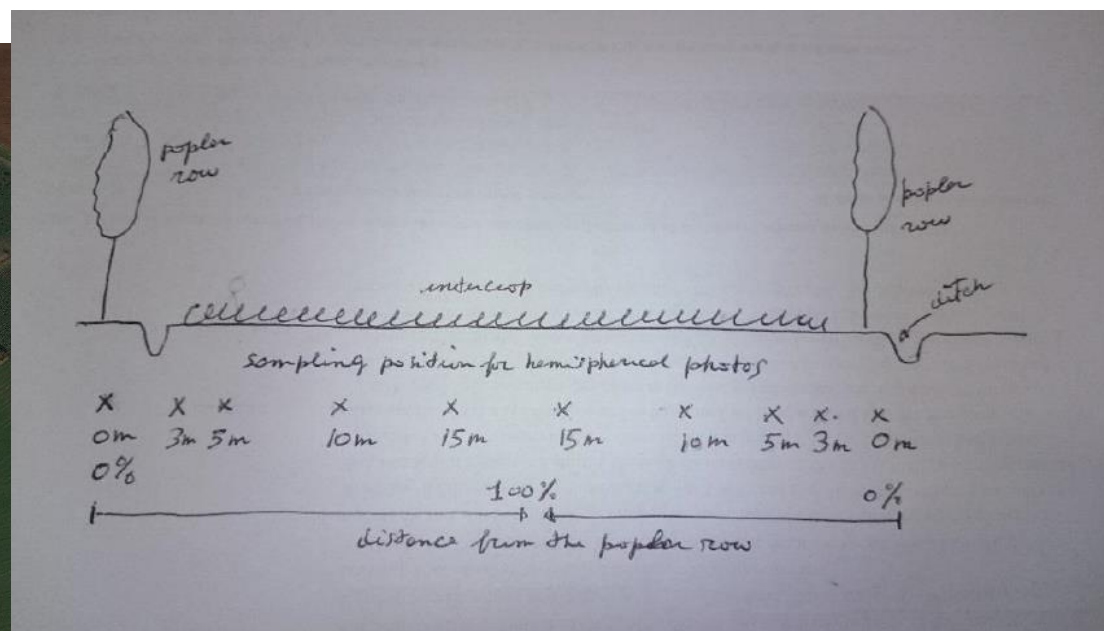 poplar
row
poplar
row
intercrop
ditch
sampling position for hemispherical photos
x x x x x x x x x x
0m 3m 5m 10m 15m 15m 10m 5m 3m 0m
0% 100% 0%
distance from the poplar row